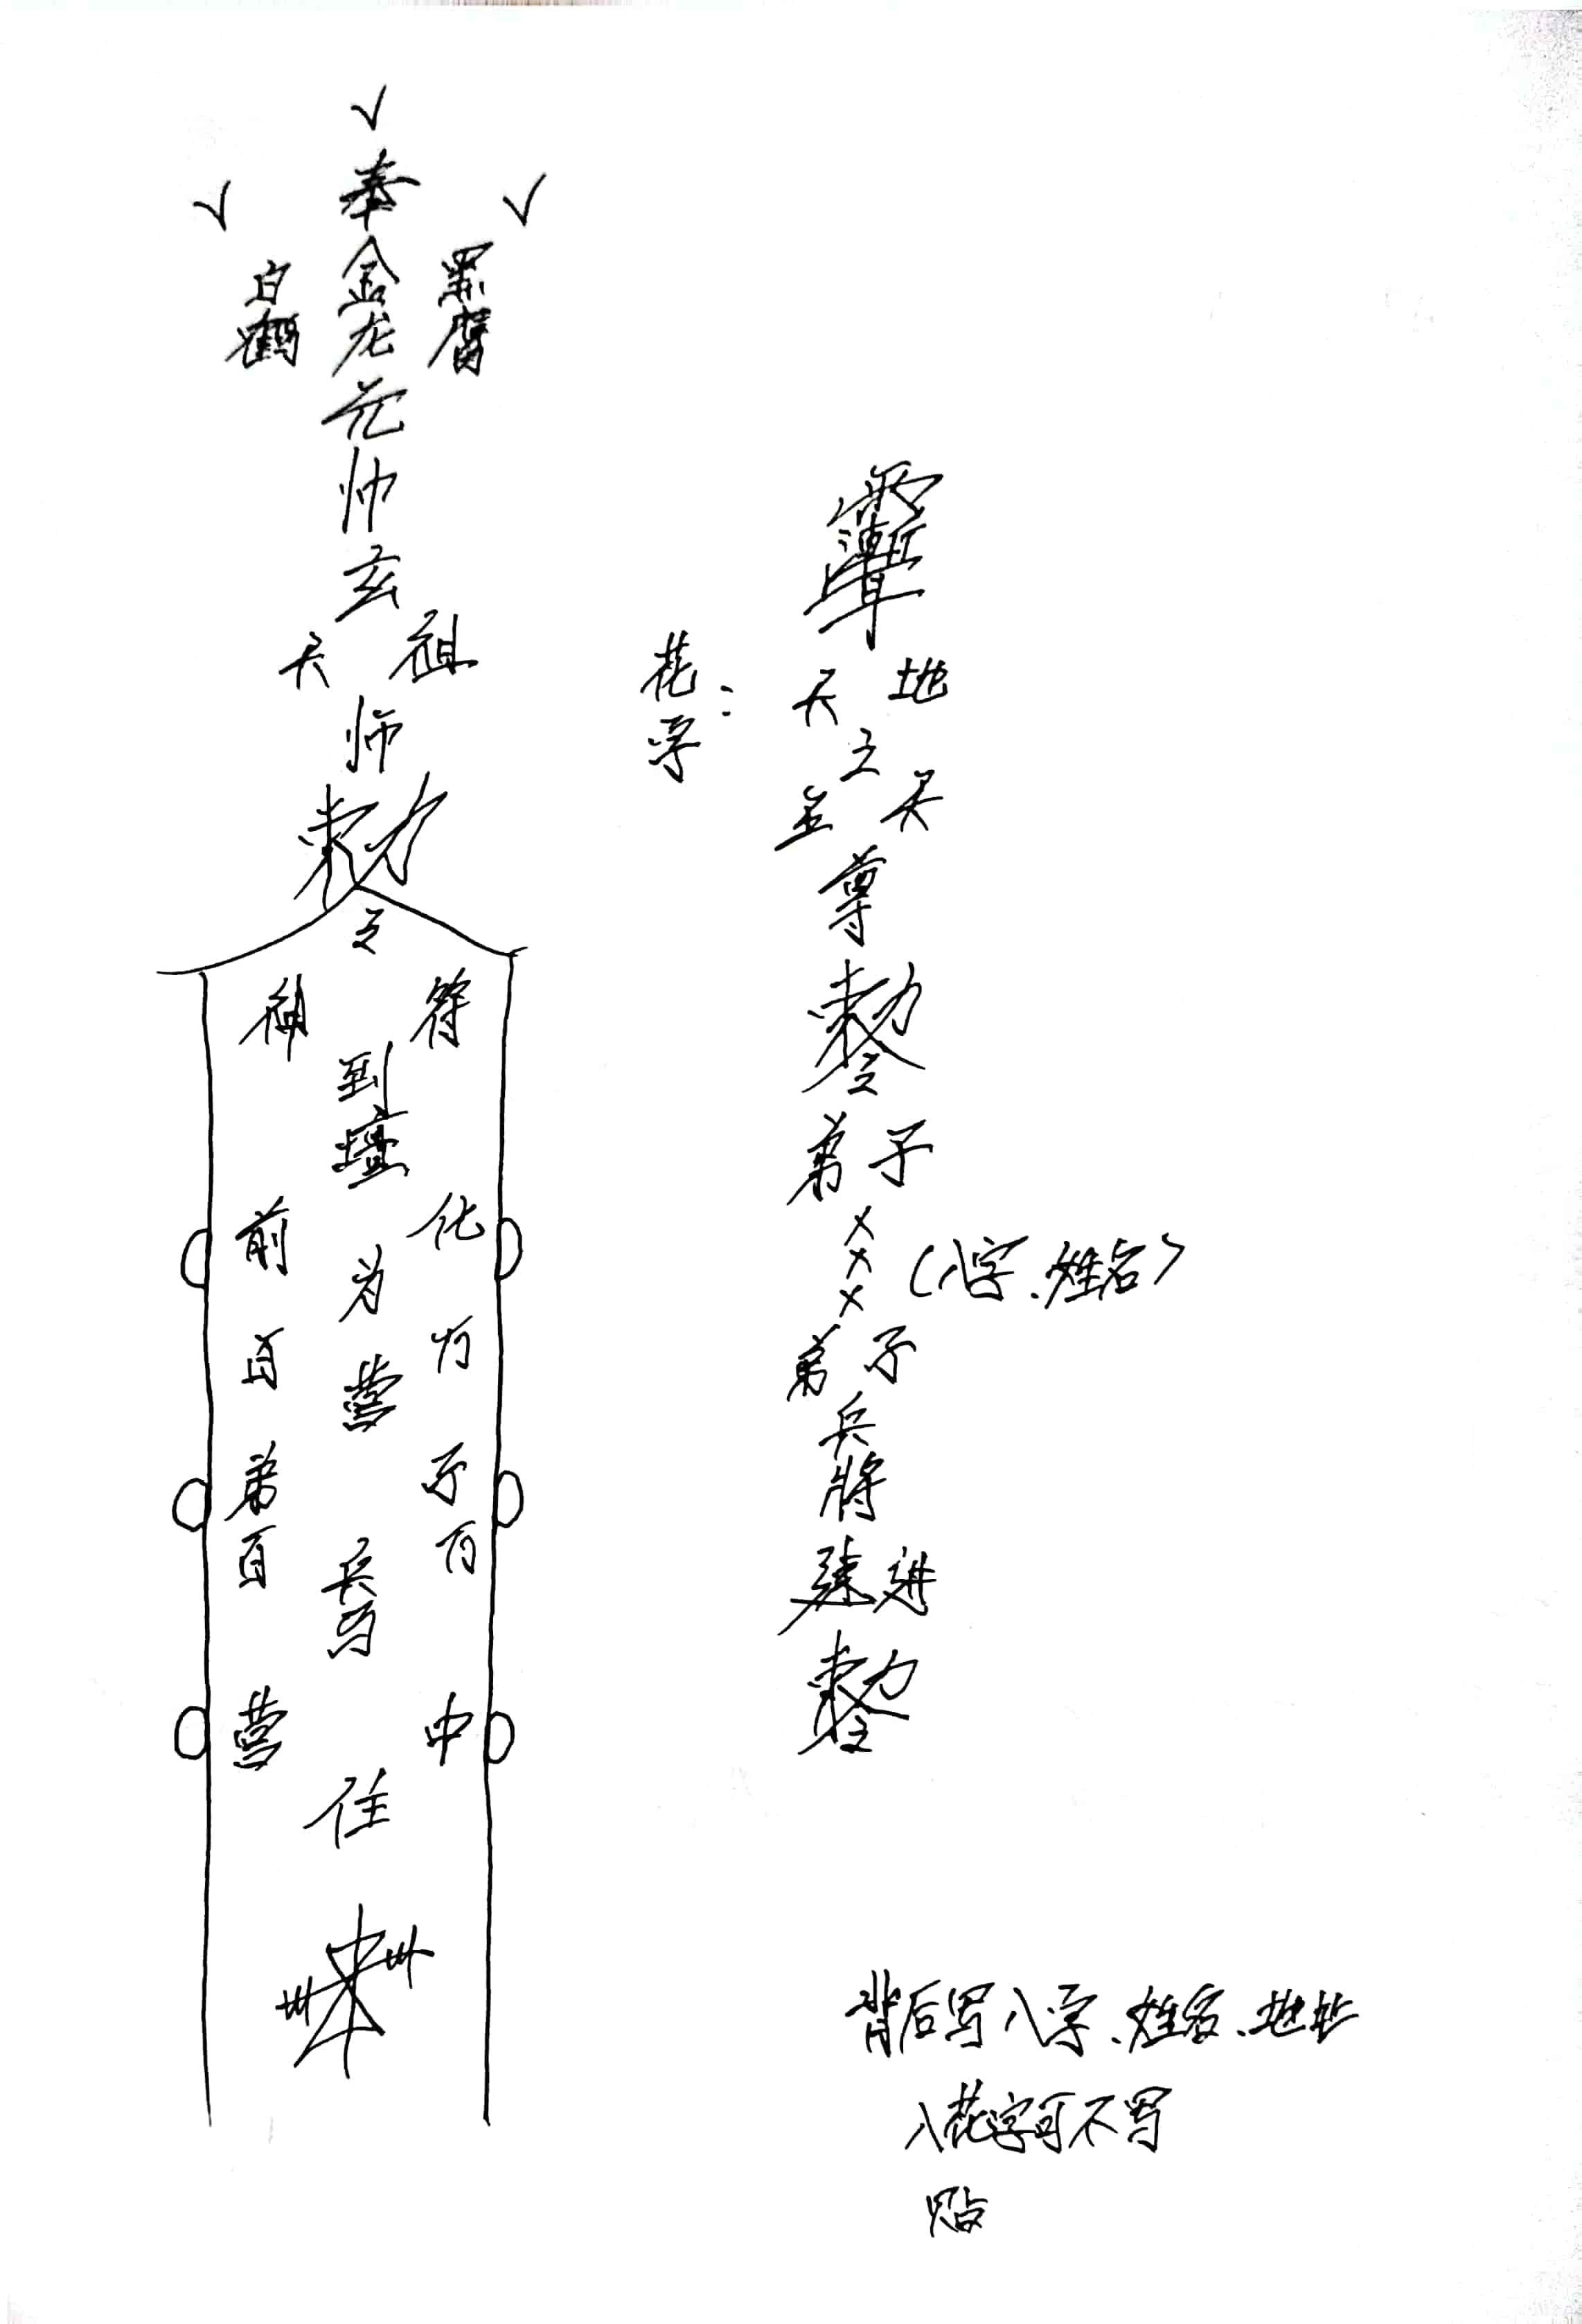 √
√ 奉 √
白鹤 金龙 黑鹰
元
帅
玄
天 祖
师
敕
令
神 符
到
坛
前 化
为
百 万
营
弟 子
百 万
兵
马
营 中
住
花字：
天 地
之
主 天
尊
敕令
弟子
×
×
×
（八字、姓名）
弟子
兵
將
速进
敕令
背后写八字、姓名、地址
入花字可不写
贴